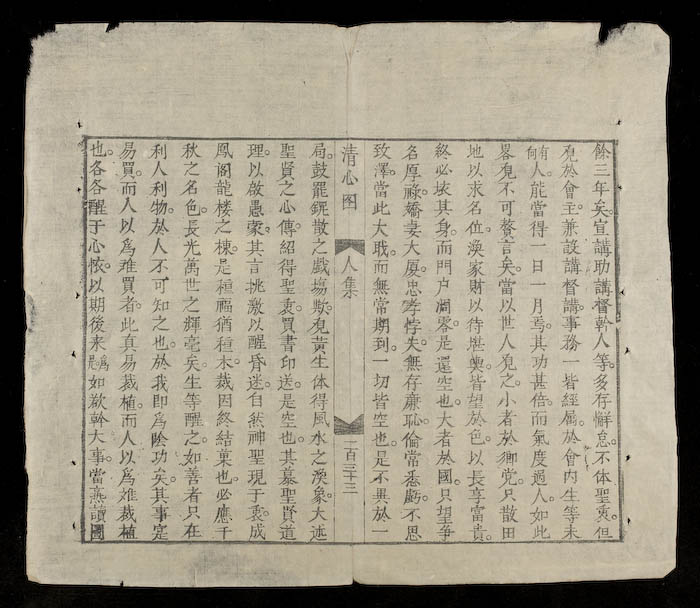 餘三年矣。宣講助講督幹人等。多存懈怠。不体聖衷。但
覌於會主兼設講督講。事務一皆經属於會内生等未
有何人能當得一日一月焉。其功甚倍。而氣度過人。如此
畧覌不可贅言矣。當以世人覌之。小者於鄉党。只散田
地以求名位。渙家財以待堪輿。皆望於色。以長享富貴。
終必坡其身。而門户凋零。是還空也。大者於國。只望爭
名厚祿。嬌妻大厦。忠孝悖失。無存廉恥。倫常悉虧。不思
致澤。當此大戢。而無常期到。一切皆空也。是不異於一
清心图 人集 一百三十三
局。鼓罷鈮散之戲塲歟。覌黃生体得風水之渙象。大述
聖賢之心傳。紹得聖衷。買書印送。是空也。其慕聖賢道
理。以啟愚蒙。其言挑激以醒昏迷。自然神聖現于衷。成
鳳阁龍楼之棟。是種福猶種木。裁因終結菓也。必應千
秋之名色。長光萬世之輝毫矣。生等醒之。如善者只在
利人利物。於人不可知之也。於我即爲陰功矣。其事寔
易買。而人以爲难買者。此真易裁植。而人以爲难裁植
也。各各醒于心恢。以期後来爲慰。如欲幹大事。當熟讀圖